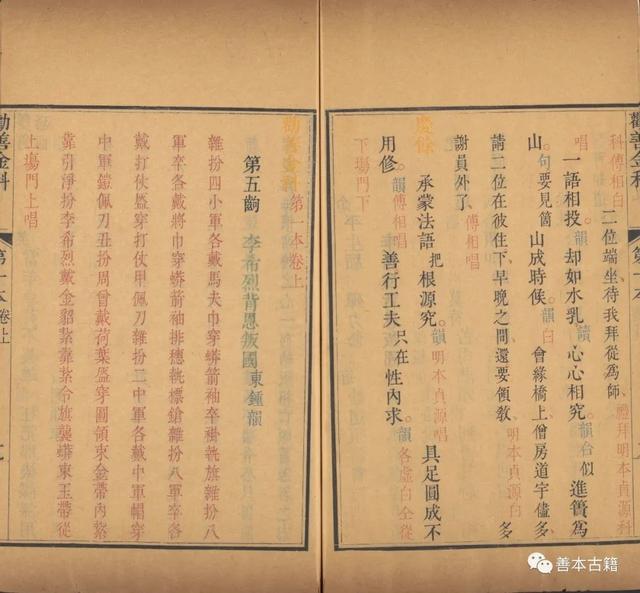 勸善金科 第一本
科傅相白 二位端坐待我拜從為師 禮拜明本貞源科
唱 一語相投 韻 却如水乳 讀 心心相究 韻 台似 進簣為
山 句 要見箇 山成時候 韻 白 會緣橋上僧房道宇儘多
請二位在彼住下早晚之間還要領敎 明本貞源白 多
謝員外了 傅相唱
慶餘 承蒙法語 把根源究 韻 明本貞源唱 具足圓成不
用修 韻 傅相唱 善行工夫 只在性內求 韻 各虛白仝從
下塲門下
勸善金科 第一本卷上
第五齣 李希烈背恩叛國 東鍾韻
雜扮四小軍各戴馬夫巾穿蟒箭袖卒褂執旗雜扮八
軍卒各戴將巾穿蟒箭袖排穗執標鎗雜扮八軍卒各
戴打仗盔穿打仗甲佩刀雜扮二中軍各戴中軍帽穿
中軍鎧佩刀丑扮周曾戴荷葉盔穿圓領束金帶內紮
靠引淨扮李希烈戴金貂紮靠紮令旗襲蟒束玉帶從
上塲門上唱
勸善金科 第一本卷上
善本古籍